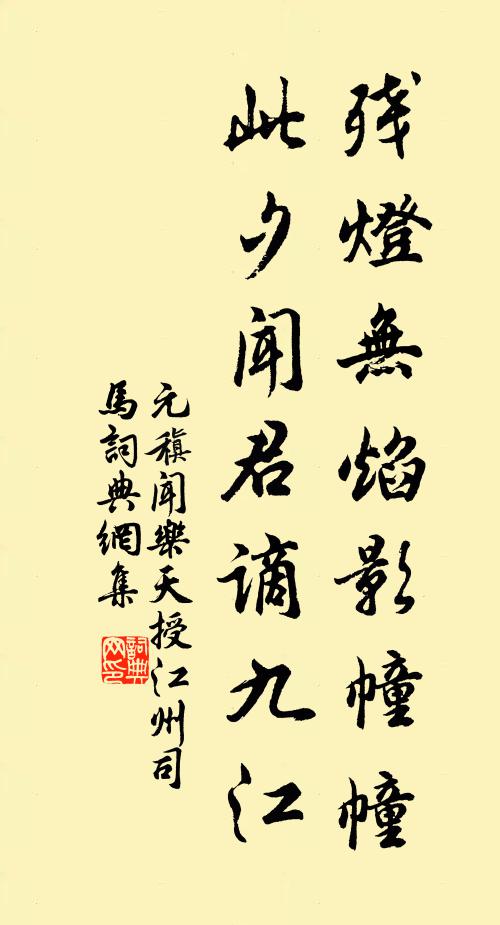 残燈無焰影幢幢
此夕聞君謫九江
元稹聞樂天授江州司
馬詞典網集
詞典
网印